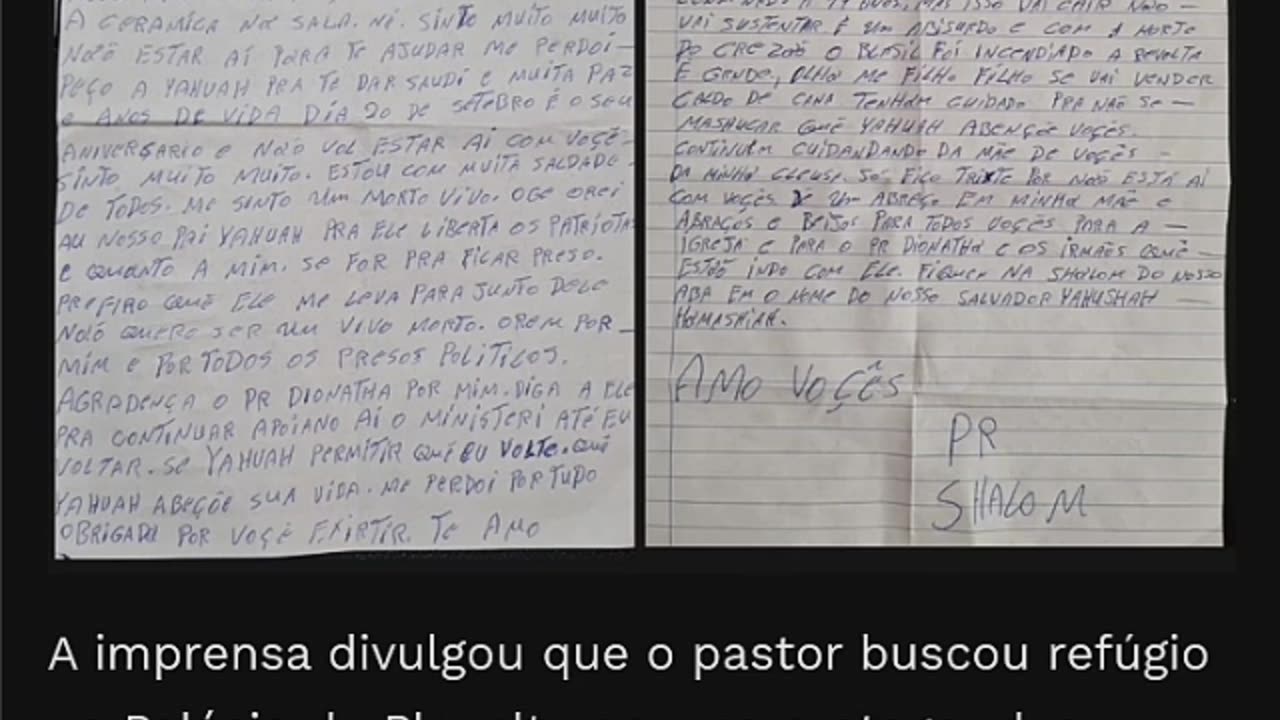 A CERAMICA NA SALA. NÉ. SINTO MUITO MUITO
NÃO ESTAR AÍ PARA TE AJUDAR ME PERDOI-
PEÇO A YAHUAH PRA TE DAR SAUDI E MUITA PAZ
E ANOS DE VIDA DÍA 20 DE SETEBRO É O SEU
ANIVERSARIO E NÃO VOL ESTAR AÍ COM VOÇÊ-
SINTO MUITO MUITO. ESTOU COM MUITA SALDADE.
DE TODOS. ME SINTO UM MORTO VIVO. OGE OREI
AU NOSSO PAI YAHUAH PRA ELE LIBERTA OS PATRIOTAS
E QUANTO A MIM. SE FOR PRA FICAR PRESO.
PREFIRO QUÊ ELE ME LEVA PARA JUNTO DELE
NÃO QUERO SER UM VIVO MORTO. OREM POR _
MIM E POR TODOS OS PRESOS POLÍTICOS.
AGRADENÇA O PR DIONATHA POR MIM. DIGA A ELE
PRA CONTINUAR APOIANO AÍ O MINISTERI ATÉ EU
VOLTAR. SE YAHUAH PERMITIR QUÊ EU VOLTE. QUÊ
YAHUAH ABEÇÕE SUA VIDA. ME PERDOI POR TUDO
OBRIGADA POR VOÇÊ EXIRTIR. TE AMO
MAS ISSO VAI CAIR NÃO -
VAI SUSTENTAR É UM ABISURDO E COM A MORTE
DO CREZÃO O BLASIL FOI INCENDIADO A REVOLTA
É GRNDE, OLHA ME FILHO FILHO SE VAI VENDER
CALDO DE CANA TENHAM CUIDADO PRA NÃO SE -
MASHUCAR QUÊ YAHUAH ABENÇÕE VOÇÊS.
CONTINUEM CUIDANDANDO DA MÃE DE VOÇÊS -
DA MINHA CLEUSI. SÓ FICO TRIXTE POR NÃO ESTÁ AÍ
COM VOÇÊS UM ABREÇO EM MINHA MÃE E
ABRAÇOS E BEIJOS PARA TODOS VOÇÊS PARA A -
IGREJA E PARA O PR DIONATHA E OS IRMÃOS QUÊ -
ESTÃO INDO COM ELE. FIQUEM NA SHALOM DO NOSSO
ABA EM O NOME DO NOSSO SALVADOR YAHUSHAH -
HAMASHIAH.
AMO VOÇÊS
PR
SHALOM
A imprensa divulgou que o pastor buscou refúgio